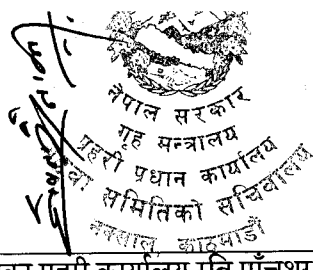 नेपाल सरकार
गृह मन्त्रालय
प्रहरी प्रधान कार्यालय
समितिको सचिवालय
नक्साल, काठमाडौं
प्रहरी कार्यालय